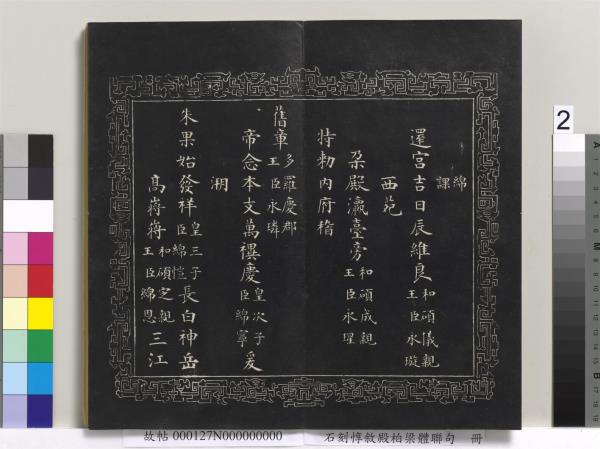 綿
課
還宮吉日辰維良 和碩儀親王臣永璇
西苑
朶殿瀛臺旁 和碩成親王臣永瑆
特勅内府稽
舊章 多羅慶郡王臣永璘
帝念本支萬禩慶 皇次子臣綿寧 爰
溯
朱果始發祥 皇三子臣綿愷 長白神岳
高嶈嶈 和碩定親王臣綿恩 三江
故帖 000127N000000000 石刻惇敘殿柏梁體聯句 冊
2
A
M
B